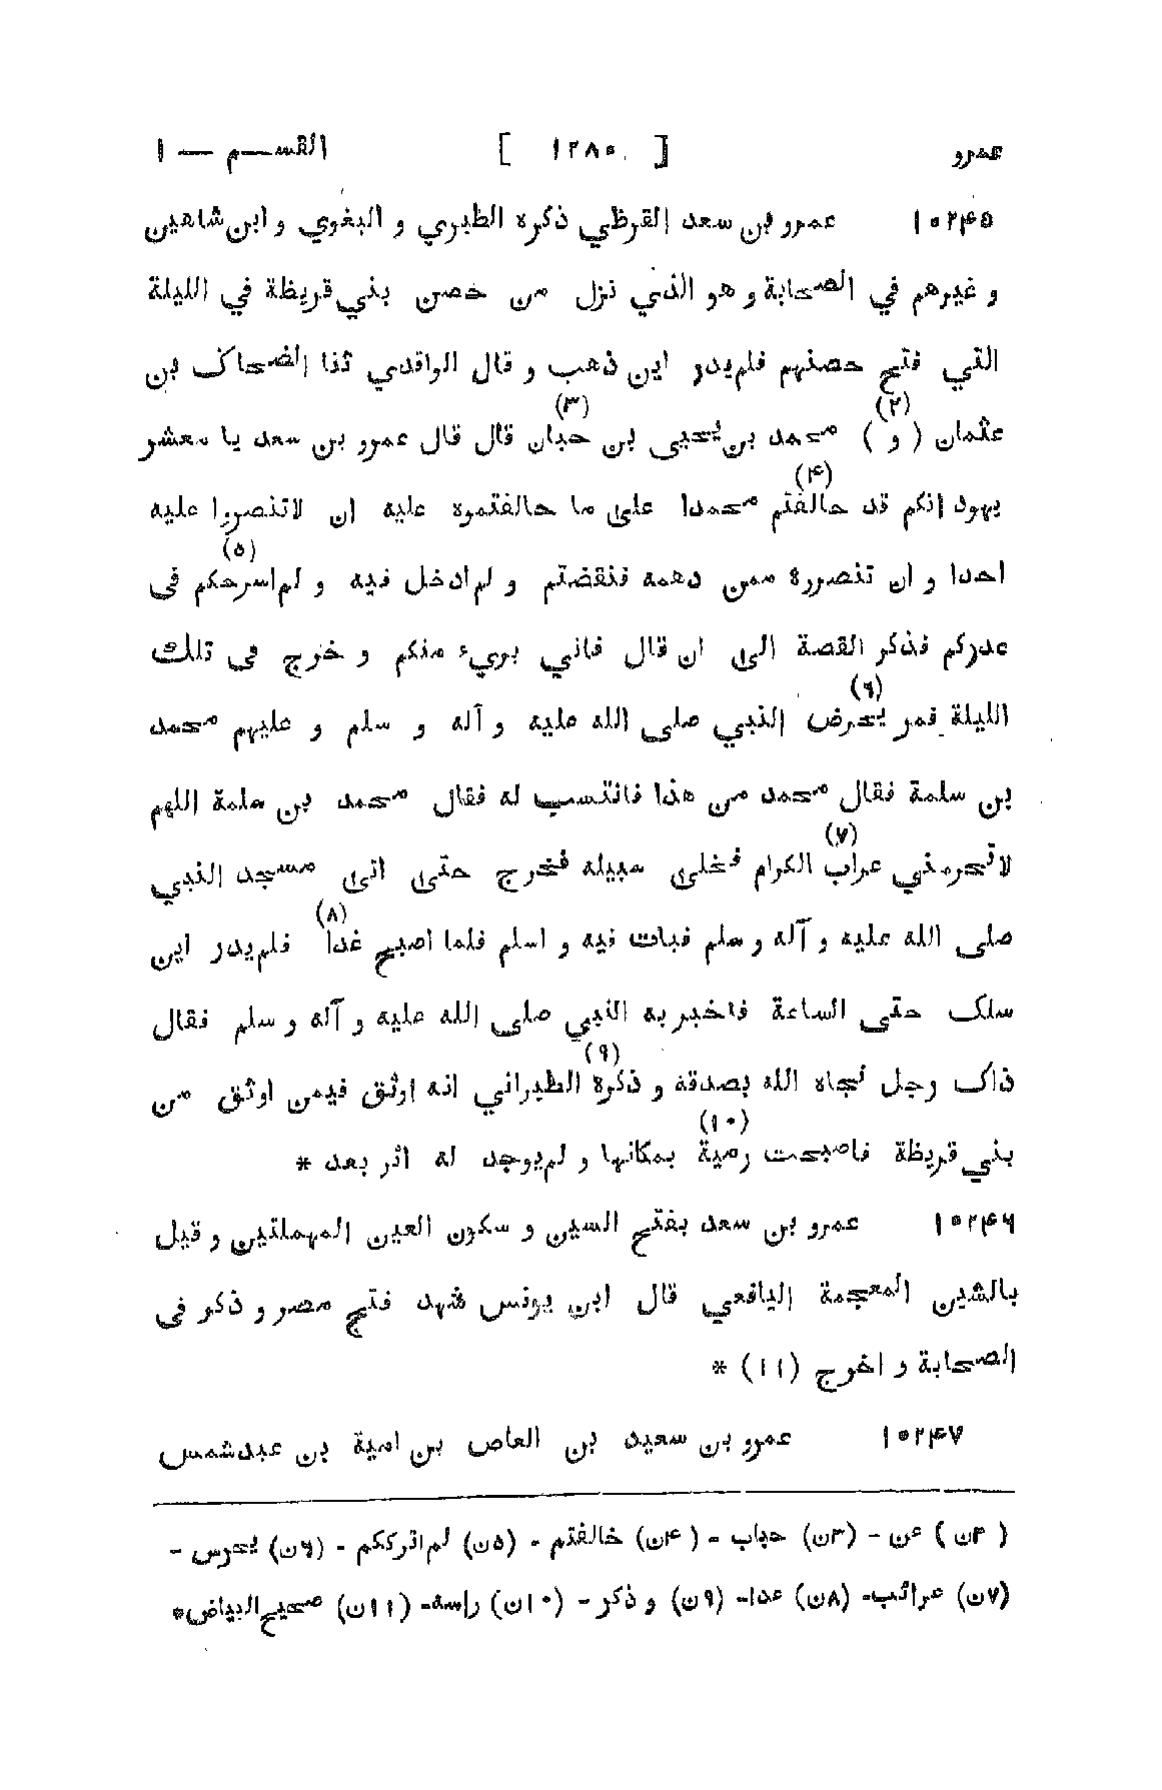 عمرو [ ١٢٨٥ ] القسم — ١
١٠٢۴٥ عمرو بن سعد القرظي ذكره الطبري و البغوي و ابن شاهين
و غيرهم في الصحابة و هو الذي نزل من حصن بني قريظة في الليلة
التي فتح حصنهم فلم يدر اين ذهب و قال الواقدي ثنا الضحاك بن
عثمان ( و ) (٢) محمد بن يحيى بن حبان (٣) قال قال عمرو بن سعد يا معشر
يهود انكم قد حالفتم (۴) محمدا على ما حالفتموه عليه ان لا تنصروا عليه
احدا و ان تنصروه ممن دهمه فنقضتم و لم ادخل فيه و لم اسرحكم (٥) فى
غدركم فذكر القصة الى ان قال فاني بريء منكم و خرج فى تلك
الليلة فمر بحرض (٦) النبي صلى الله عليه و آله و سلم و عليهم محمد
بن سلمة فقال محمد من هذا فانتسب له فقال محمد بن سلمة اللهم
لا تحرمني عراب (٧) الكرام فخلى سبيله فخرج حتى اتى مسجد النبي
صلى الله عليه و آله و سلم فبات فيه و اسلم فلما اصبح غدا (٨) فلم يدر اين
سلك حتى الساعة فاخبر به النبي صلى الله عليه و آله و سلم فقال
ذاك رجل نجاه الله بصدقه و ذكره (٩) الطبراني انه اوثق فيمن اوثق من
بني قريظة فاصبحت رمية (١٠) بمكانها و لم يوجد له اثر بعد *
١٠٢۴٦ عمرو بن سعد بفتح السين و سكون العين المهملتين و قيل
بالشين المعجمة اليافعي قال ابن يونس شهد فتح مصر و ذكر فى
الصحابة و اخرج (١١) *
١٠٢۴٧ عمرو بن سعيد بن العاص بن امية بن عبد شمس
( ٢ن ) عن - (٣ن) حباب - ( ۴ن) خالفتم - (٥ن) لم اترككم - (٦ن) بحرس -
(٧ن) عرائب- (٨ن) عدا- (٩ن) و ذكر - (١٠ن) راسه- (١١ن) صحيح البياض*